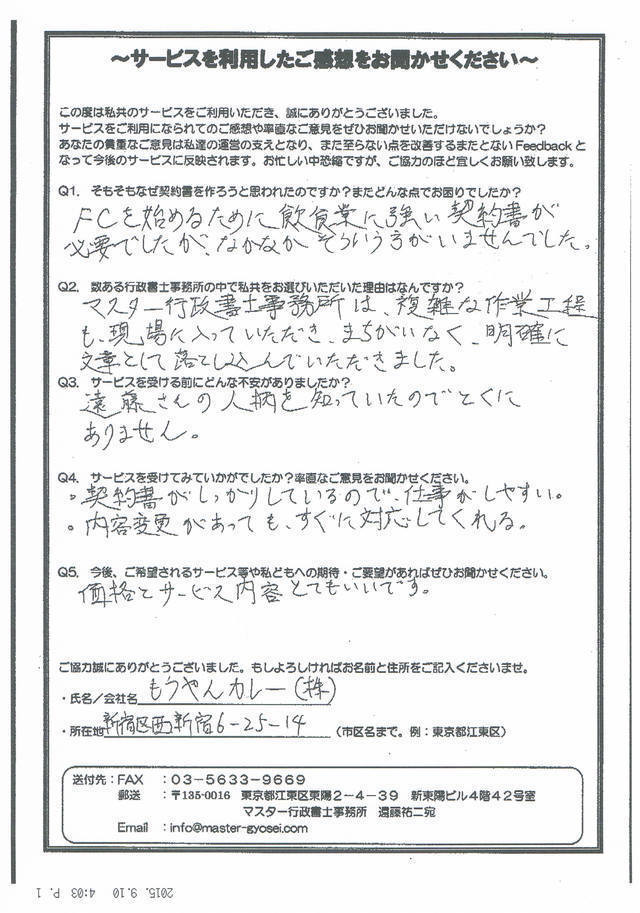 ～サービスを利用したご感想をお聞かせください～
この度は私共のサービスをご利用いただき、誠にありがとうございました。
サービスをご利用になられてのご感想や率直なご意見をぜひお聞かせいただけないでしょうか？
あなたの貴重なご意見は私達の運営の支えとなり、また至らない点を改善するまたとないFeedbackと
なって今後のサービスに反映されます。お忙しい中恐縮ですが、ご協力のほど宜しくお願い致します。
Q1．そもそもなぜ契約書を作ろうと思われたのですか？まだどんな点でお困りでしたか？
FCを始めるために飲食業に強い契約書が
必要でしたが、なかなかそういう方がいませんでした。
Q2．数ある行政書士事務所の中で私共をお選びいただいた理由はなんですか？
マスター行政書士事務所は、複雑な作業工程
も、現場に入っていただき、まちがいなく、明確に
文章として落とし込んでいただきました。
Q3．サービスを受ける前にどんな不安がありましたか？
遠藤さんの人柄を知っていたのでとくに
ありません。
Q4．サービスを受けてみていかがでしたか？率直なご意見をお聞かせください。
・契約書がしっかりしているので、仕事がしやすい。
・内容変更があっても、すぐに対応してくれる。
Q5．今後、ご希望されるサービス等や私どもへの期待・ご要望があればぜひお聞かせください。
価格とサービス内容とてもいいです。
ご協力誠にありがとうございました。もしよろしければお名前と住所をご記入くださいませ。
・氏名／会社名 もうやんカレー（株）
・所在地 新宿区西新宿6-25-14 （市区名まで。例：東京都江東区）
送付先：FAX ：03-5633-9669
郵送 ：〒135-0016 東京都江東区東陽2-4-39 新東陽ビル4階42号室
マスター行政書士事務所 遠藤祐二宛
Email ：info@master-gyosei.com
2015. 9.10 4:03 P. 1